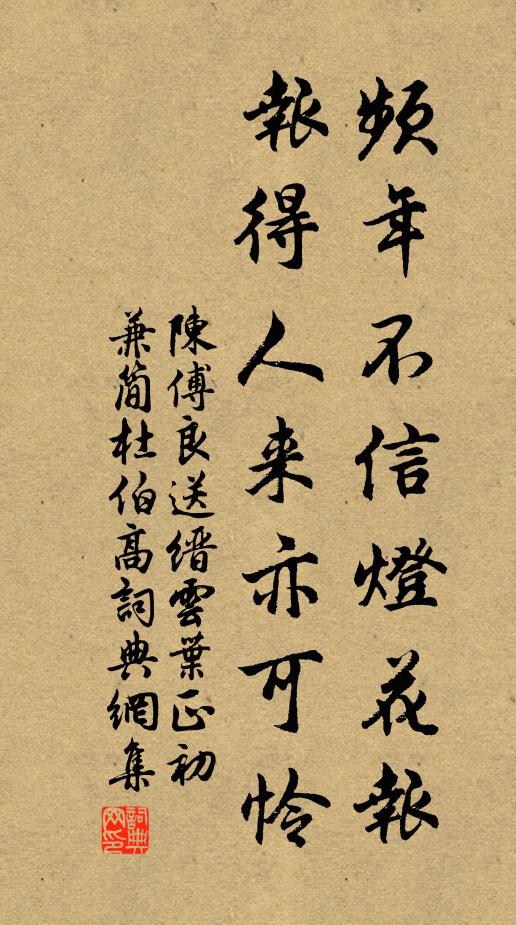 頻年不信燈花報
報得人来亦可怜
陳傅良送缙雲葉正初
兼简杜伯高詞典網集
詞典网印